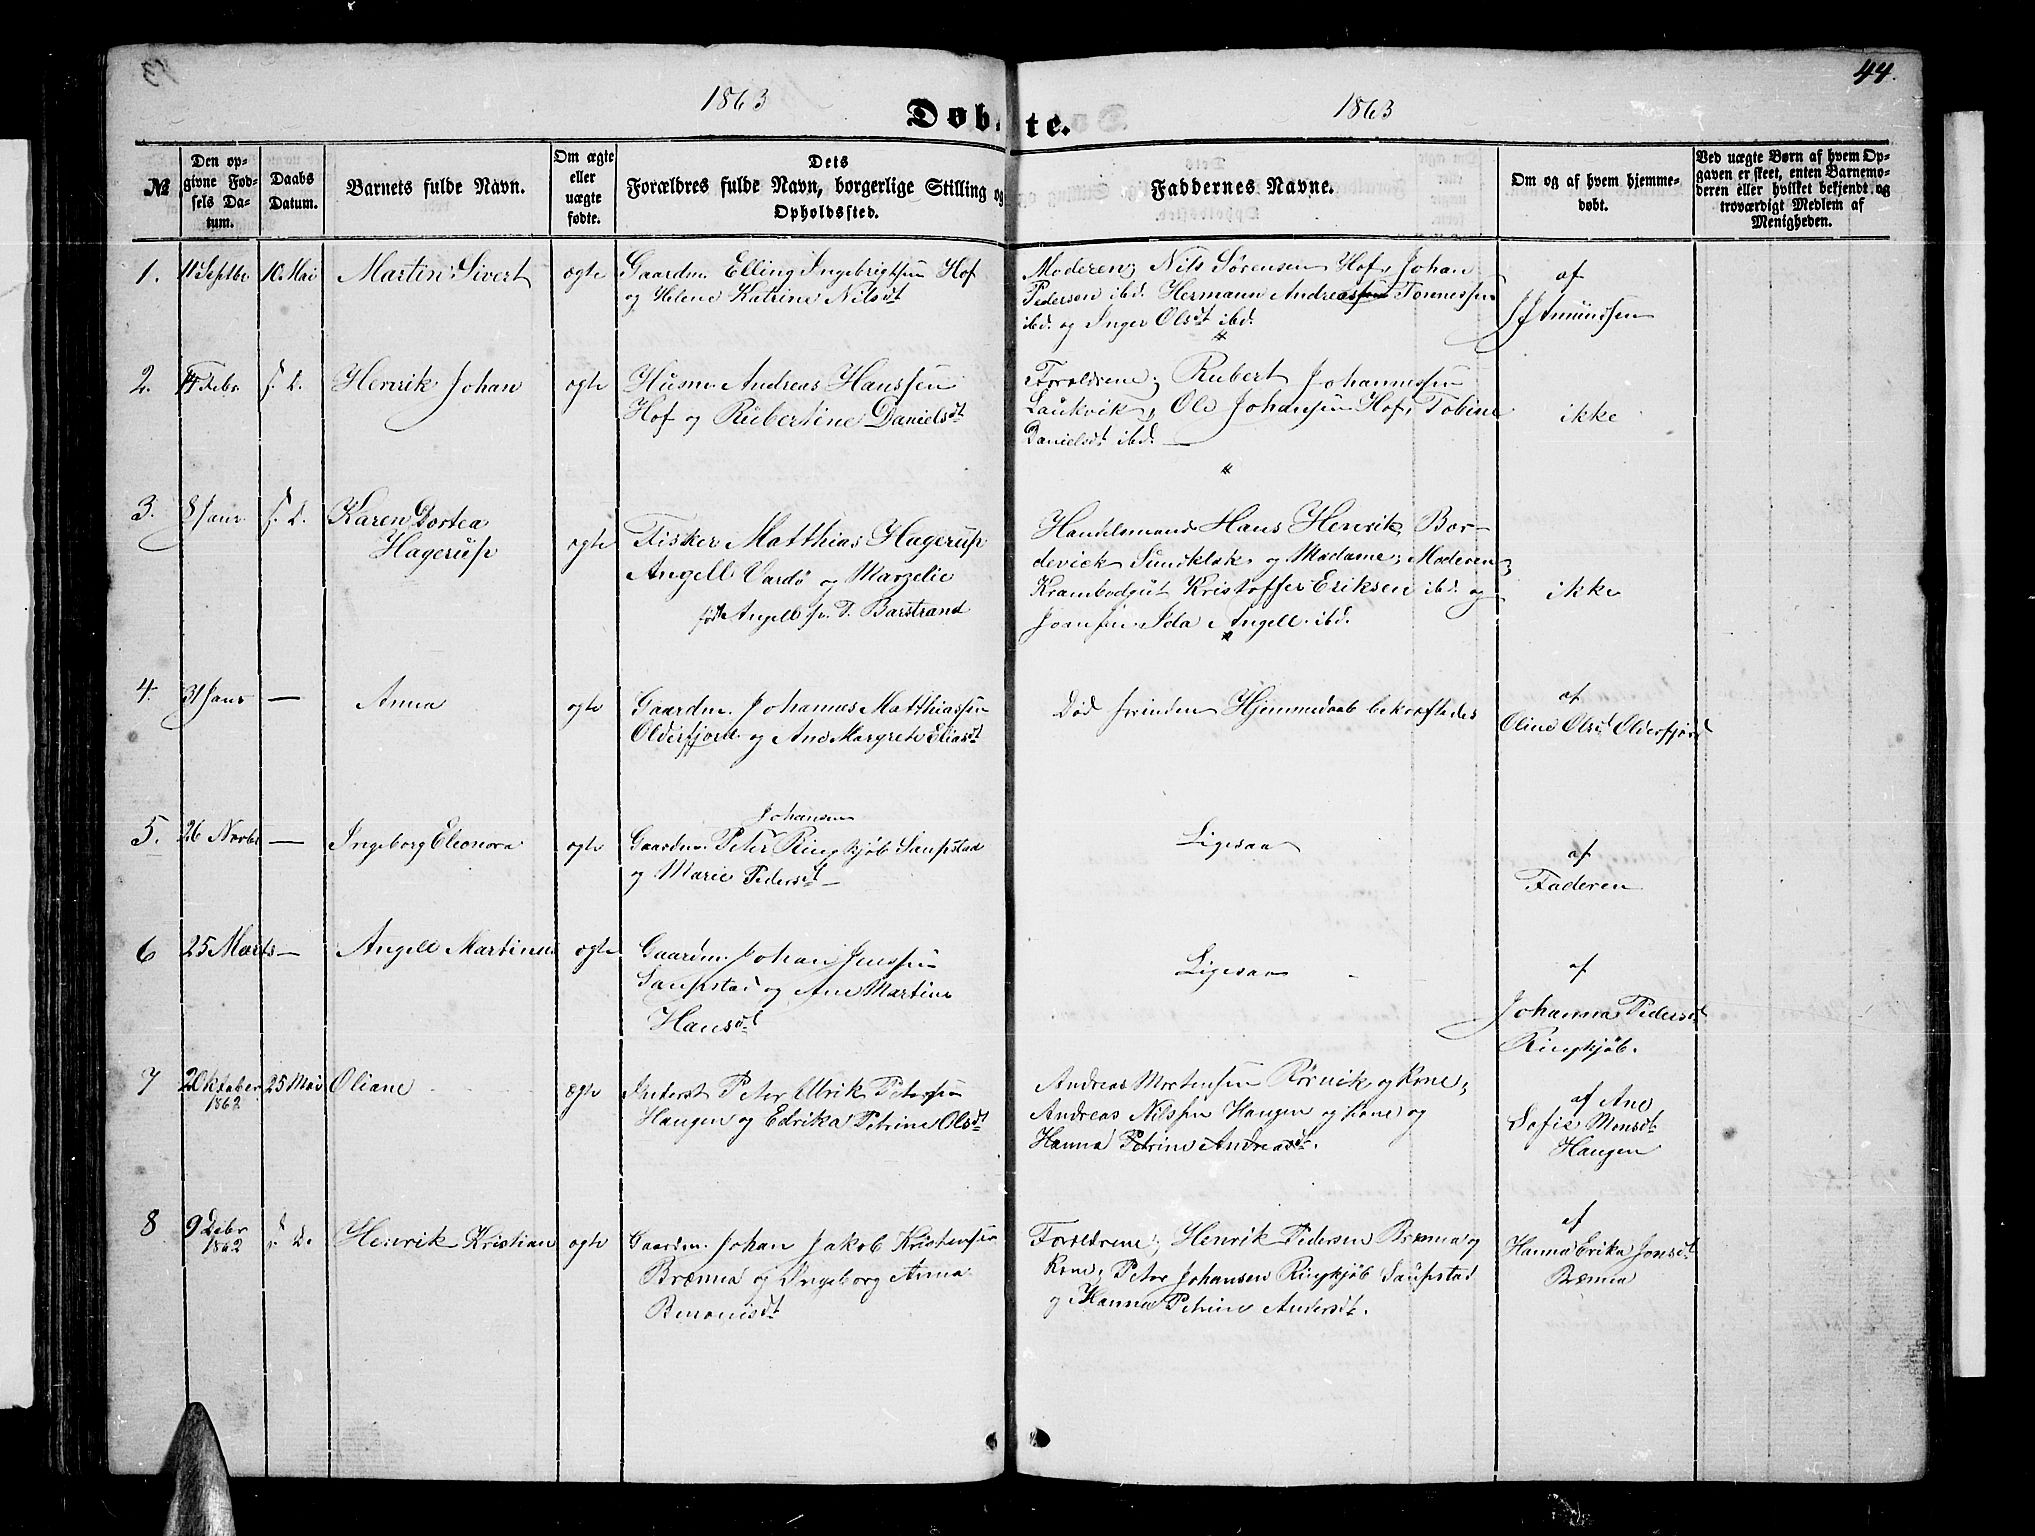 44.
1863
1863
Døbte.
№
Den opgivne Fødsels Datum.
Daabs Datum.
Barnets fulde Navn.
Om ægte eller uægte fødte.
Dets Forældres fulde Navn, borgerlige Stilling og Opholdssted.
Faddernes Navne.
Om og af hvem hjemmedøbt.
Ved uægte Børn af hvem Opgaven er skeet, enten Barnemoderen eller hvilket bekjendt og troværdigt Medlem af Menigheden.
1. 11 Septbr 10 Mai Martin Sivert ægte Gaardm. Elling Ingebrigtsen Hof
og Helene Katrine Nilsdt
Moderen; Nils Sørensen Hof, Johan
Pederson ibd. Hermann Andreas Tønnessen
ibd. og Inger Olsdt ibd.
af
Amundsen
2. Febr s. D. Henrik Johan ægte Husm. Andreas Hanssen
Hof og Rubertine Danielsdt
Forældrene; Rubert Johannessen
Laukvik, Ole Johansen Hof, Tobine
Danielsdt ibd.
ikke
3. Janr s. D. Karen Dortea
Hagerup
ægte
Fisker Matthias Hagerup
Angell Vardø og Marzelie
født Angell Barstrand
Handelsmand Hans Henrik Bor-
devick Sundklak og Madame; Moderen;
Krambodgut Kristoffer Eriksen ibd. og
Ida Angell ibd.
ikke
4. 31 Janr — Anna ægte Gaardm. Johannes Matthiassen
Olderfjord og Ane Margrete Eliasdt
Død forinden Hjemmedaab bekræftedes
af
Oline Olsdt Olderfjord
5. 26 Novbr — Ingeborg Eleonora ægte
Johansen
Gaardm. Peter Ringkjøb Saupstad
og Marie Pedersdt —
Ligesaa
af
Faderen
6 25 Marts — Angell Martinus ægte Gaardm. Johan Jenssen
Saupstad og Ane Martine
Hansdt
Ligesaa
af
Johanna Pedersdt
Ringkjøb.
7 Oktober 1862 25 Mai Oliane ægte Inderst Peter Ulrik Petersen
Haugen og Edrika Petrine Olsdt
Andreas Mortensen Rørvik og Kone;
Andreas Nilssen Haugen og Kone og
Hanna Petrine Andreasdt.
af Ane
Sofie Monsdt
Haugen
8 9 Debr 1862 s. D. Henrik Kristian ægte Gaardm. Johan Jakob Kristensen
Brænna og Ingeborg Anna
Benonisdt
Forældrene; Henrik Pedersen Brænna og
Kone; Peter Johansen Ringkjøb Saupstad
og Hanna Petrine Andersdt.
af
Hanna Erika Jonsdt
Brænna